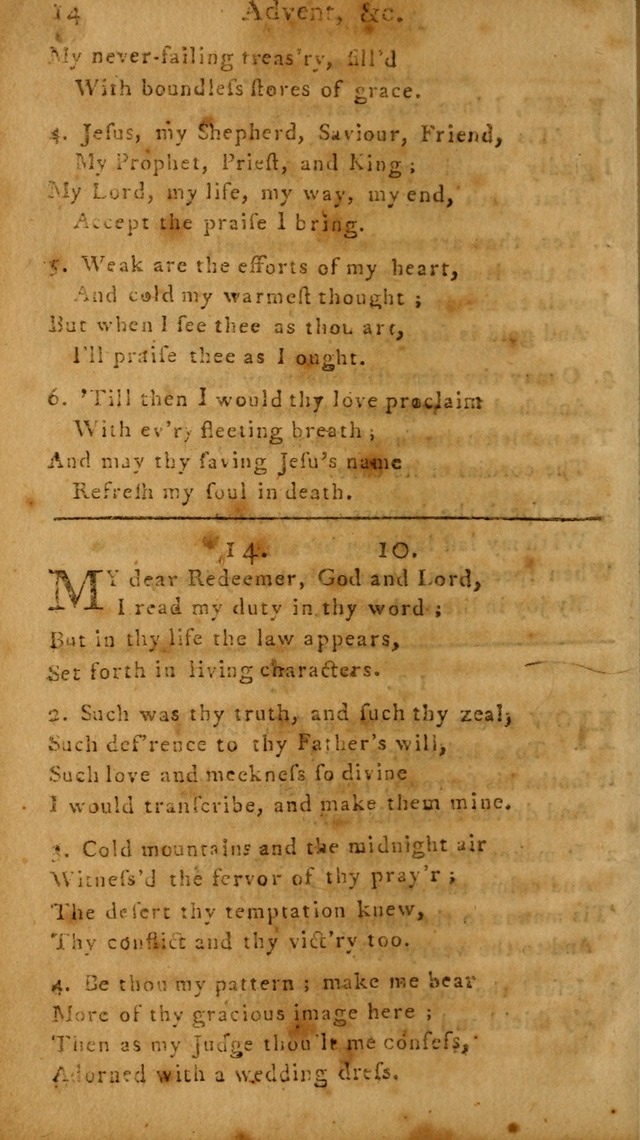 14 Advent, &c.
My never-failing treas'ry, fill'd
With boundleſs ſtores of grace.
4. Jeſus, my Shepherd, Saviour, Friend,
My Prophet, Prieſt, and King ;
My Lord, my life, my way, my end,
Accept the praiſe I bring.
5. Weak are the efforts of my heart,
And cold my warmeſt thought ;
But when I ſee thee as thou art,
I'll praiſe thee as I ought.
6. 'Till then I would thy love proclaim
With ev'ry fleeting breath ;
And may thy ſaving Jeſu's name
Refreſh my ſoul in death.
14. 10.
MY dear Redeemer, God and Lord,
I read my duty in thy word ;
But in thy life the law appears,
Set forth in living characters.
2. Such was thy truth, and ſuch thy zeal,
Such def'rence to thy Father's will,
Such love and meekneſs ſo divine
I would tranſcribe, and make them mine.
3. Cold mountains and the midnight air
Witneſs'd the fervor of thy pray'r ;
The deſert thy temptation knew,
Thy conflict and thy vict'ry too.
4. Be thou my pattern ; make me bear
More of thy gracious image here ;
Then as my Judge thou'lt me confeſs,
Adorned with a wedding dreſs.